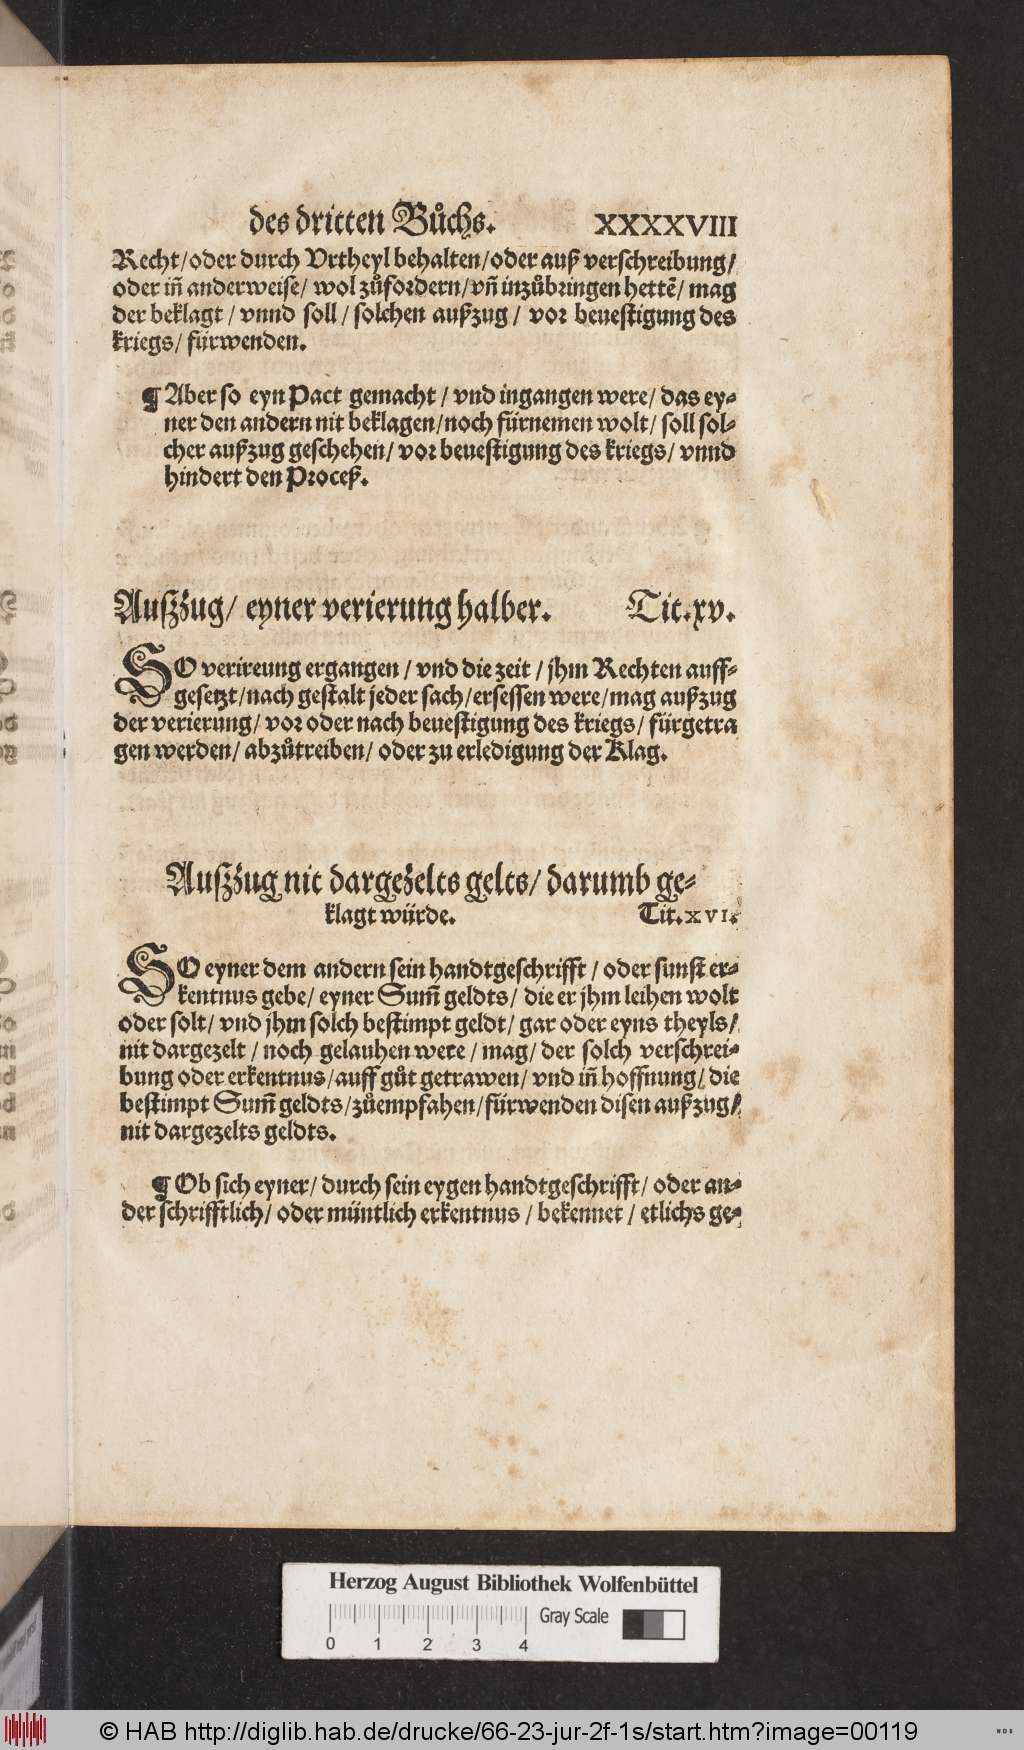 des dritten Bůchs. XXXXVIII
Recht/oder durch Vrtheyl behalten/oder auß verschreibung/
oder iñ anderweise/ wol zůfordern/vñ inzůbringen hettẽ/ mag
der beklagt / vnnd soll / solchen außzug / vor beuestigung des
kriegs/ fürwenden.
¶ Aber so eyn Pact gemacht / vnd ingangen were/ das ey-
ner den andern nit beklagen/noch fürnemen wolt/ soll sol-
cher außzug geschehen/ vor beuestigung des kriegs/ vnnd
hindert den Proceß.
Außzug/ eyner verierung halber. Tit.xv.
SO verireung ergangen / vnd die zeit / jhm Rechten auff-
gesetzt/nach gestalt jeder sach/ersessen were/mag außzug
der verierung/ vor oder nach beuestigung des kriegs/ fürgetra
gen werden/ abzůtreiben/ oder zu erledigung der Klag.
Außzug nit dargezelts gelts/ darumb ge-
klagt würde. Tit.XVI.
SO eyner dem andern sein handtgeschrifft / oder sunst er-
kentnus gebe/ eyner Sum̃ geldts/ die er jhm leihen wolt
oder solt/ vnd jhm solch bestimpt geldt/ gar oder eyns theyls/
nit dargezelt / noch gelauhen were / mag/ der solch verschrei-
bung oder erkentnus/auff gůt getrawen/ vnd iñ hoffnung/ die
bestimpt Sum̃ geldts/zůempfahen/fürwenden disen außzug/
nit dargezelts geldts.
¶ Ob sich eyner/ durch sein eygen handtgeschrifft/ oder an-
der schrifftlich/ oder müntlich erkentnus / bekennet / etlichs ge-
Herzog August Bibliothek Wolfenbüttel
Gray Scale
0 1 2 3 4
© HAB http://diglib.hab.de/drucke/66-23-jur-2f-1s/start.htm?image=00119